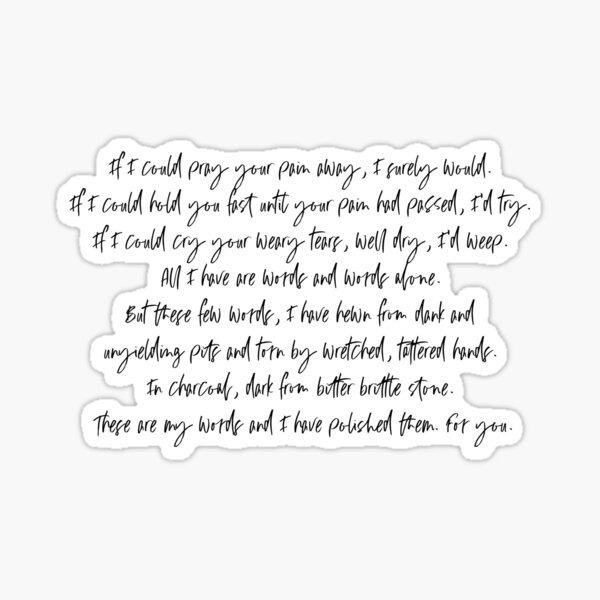 If I could pray your pain away, I surely would.
If I could hold you fast until your pain had passed, I'd try.
If I could cry your weary tears, well dry, I'd weep.
All I have are words and words alone.
But these few words, I have hewn from dank and
unyielding pits and torn by wretched, tattered hands.
In charcoal, dark from bitter brittle stone.
These are my words and I have polished them. For you.